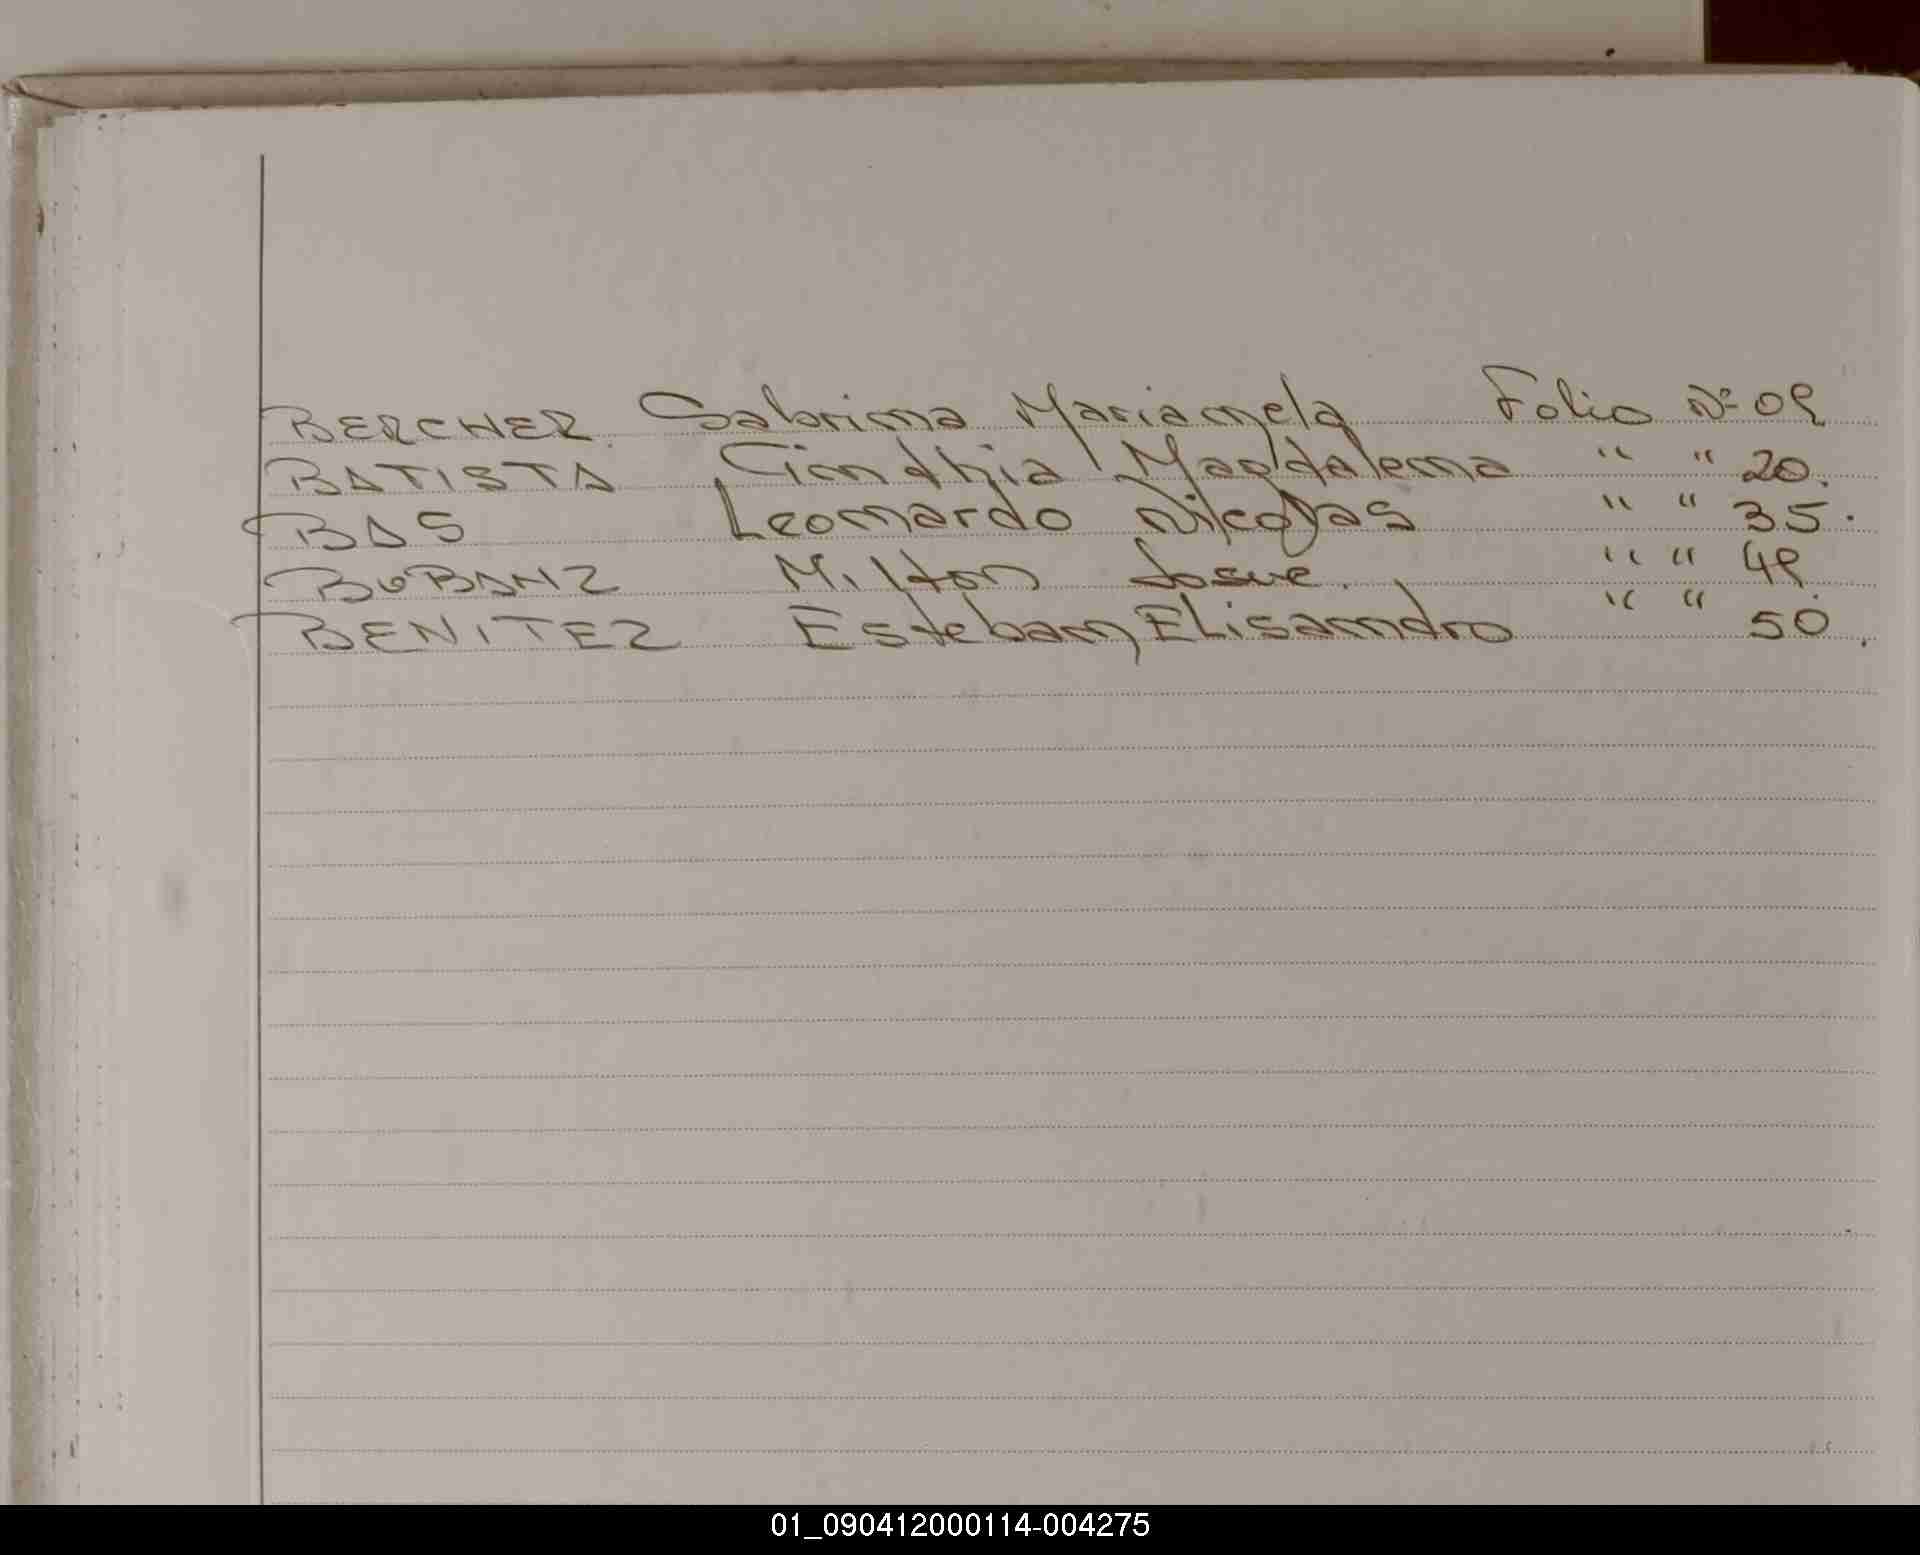 BERCHER Sabrina Marianela Folio Nº 09
BATISTA Cinthia Magdalena " " 20.
BAS Leonardo Nicolas " " 35.
BOBANZ Milton Josue. " " 49
BENITEZ Esteban Elisandro " " 50.
01_090412000114-004275